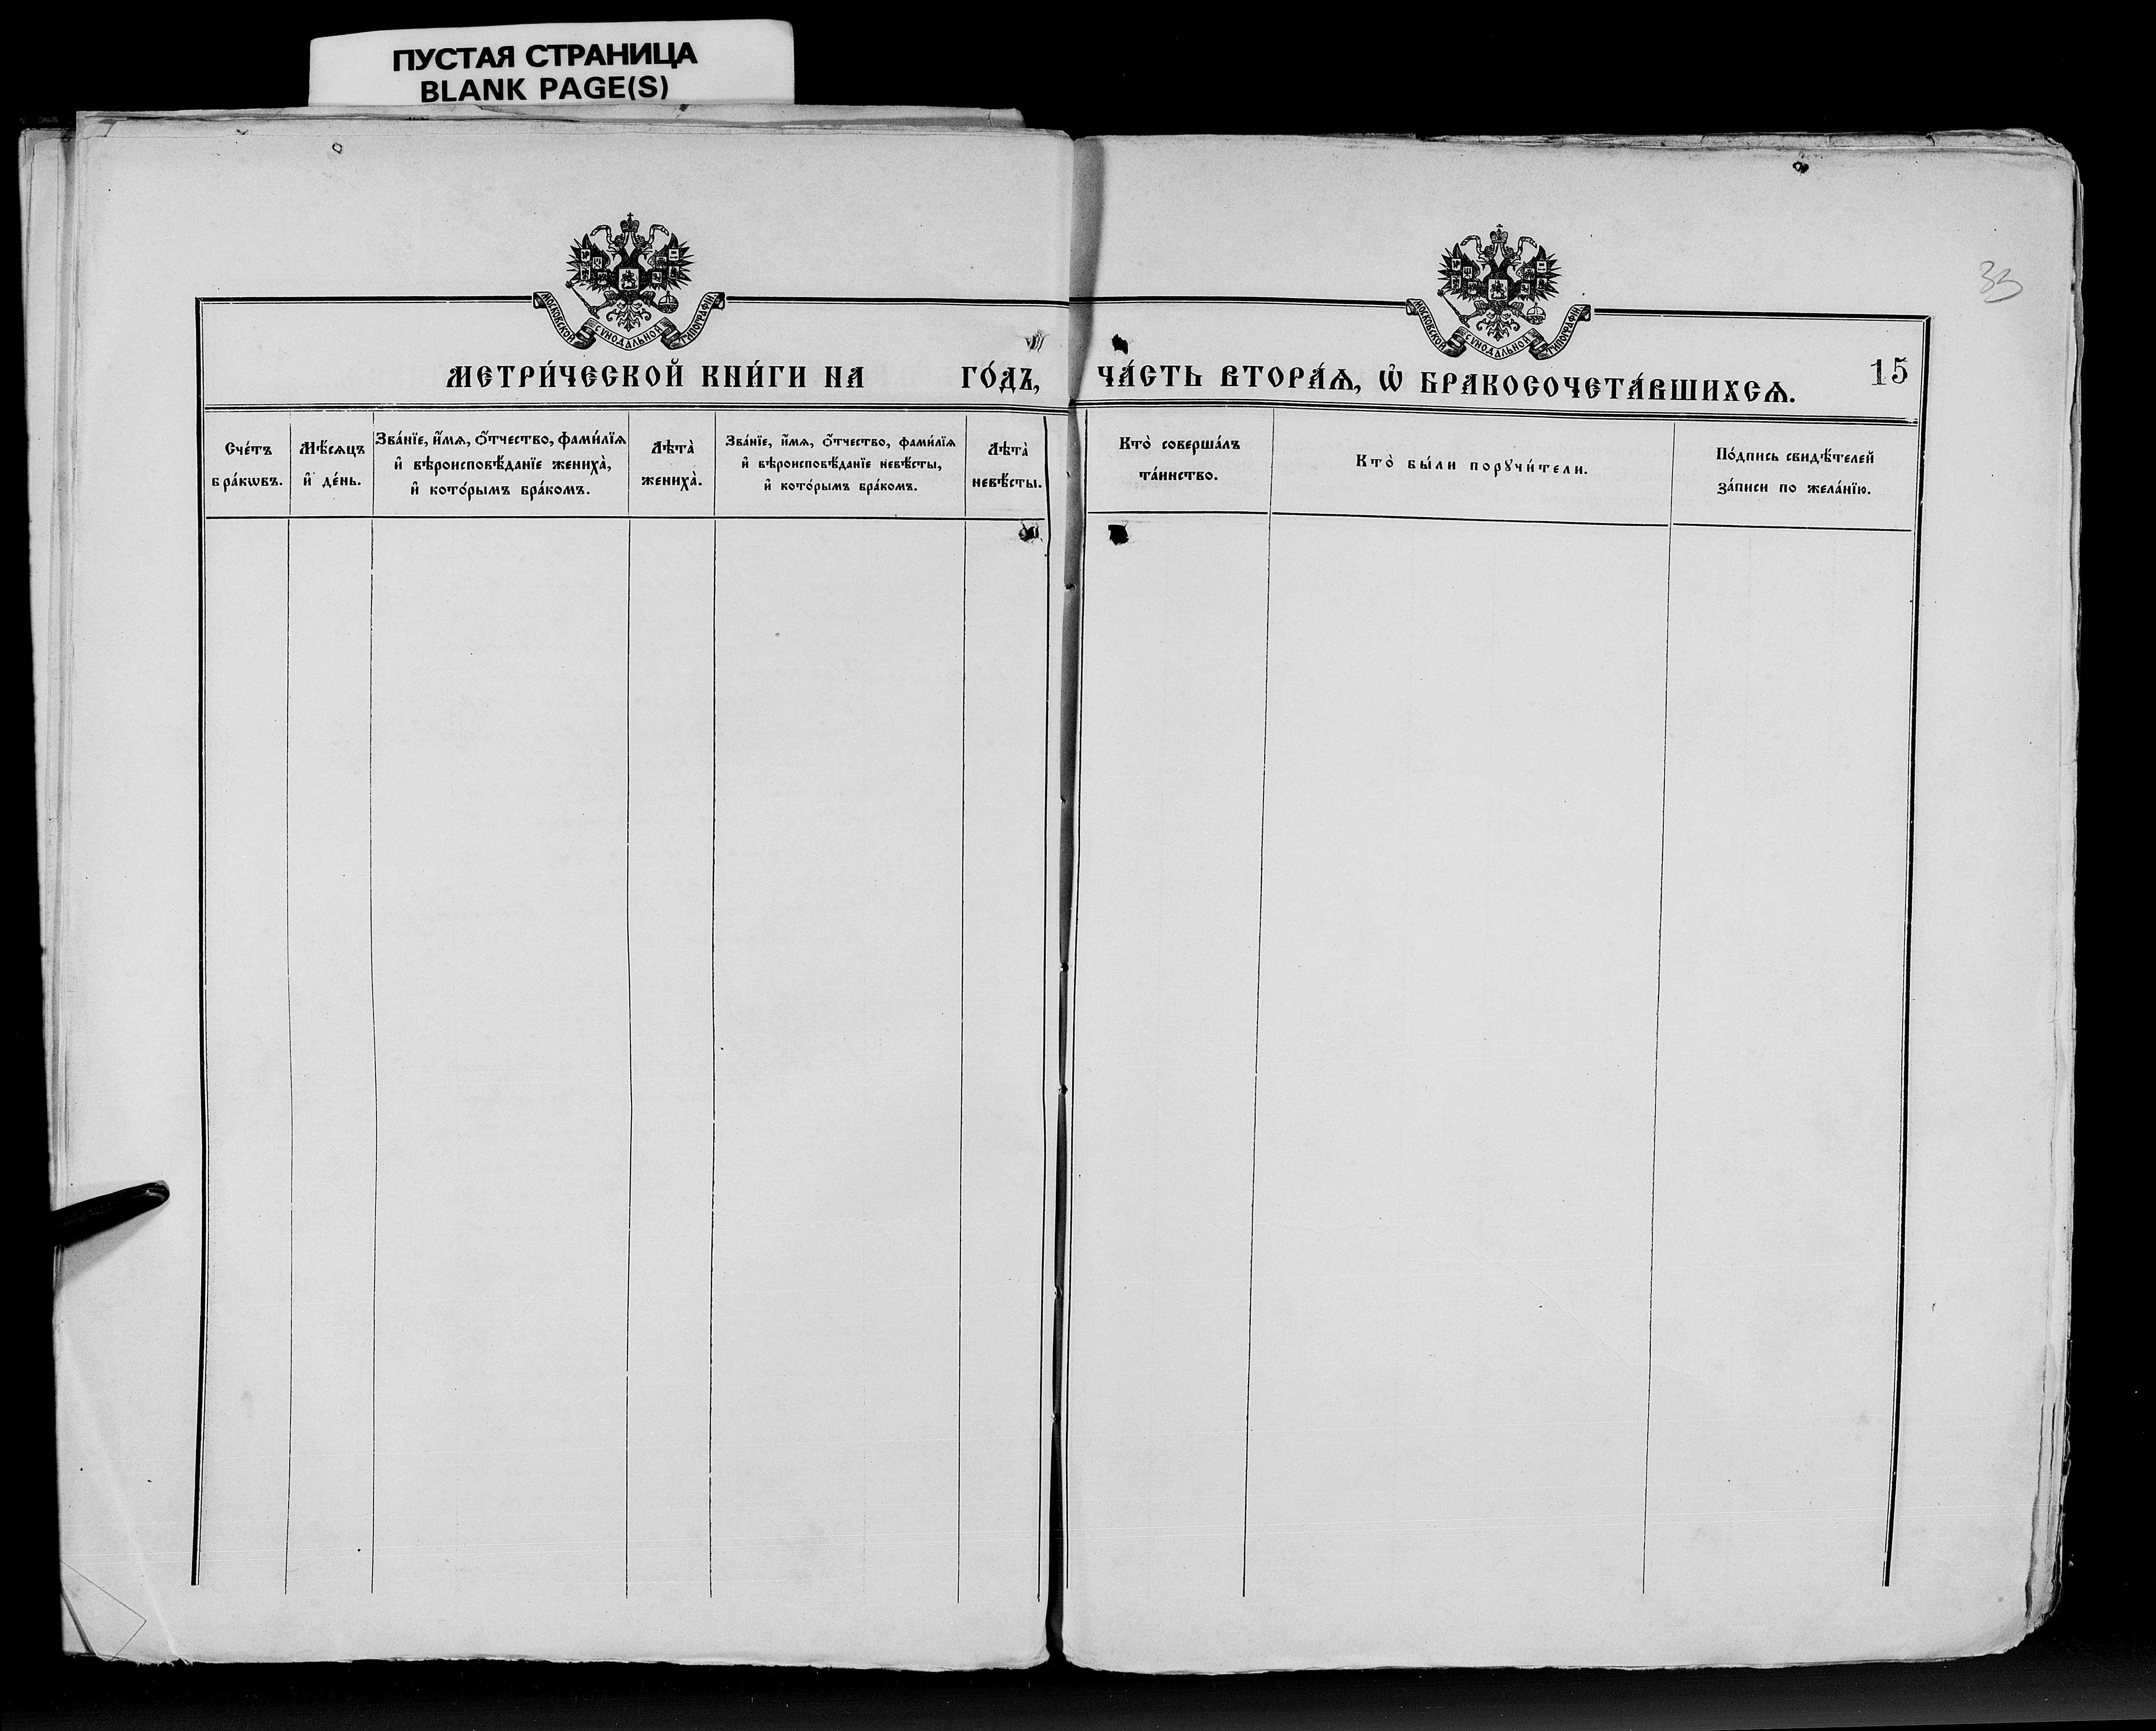 ПУСТАЯ СТРАНИЦА
BLANK PAGE(S)
МОСКОВСКОЙ СѴНОДАЛЬНОЙ ТИПОГРАФІИ
МЕТРИ́ЧЕСКОЙ КНИ́ГИ НА ГО́ДЪ,
Сче́тъ
бра́кѡвъ.
Мѣ́сѧцъ
и҆ де́нь.
Зва́нїе, и҆́мѧ, ѻ҆́тчество, фами́лїѧ
и҆ вѣроисповѣ́данїе жениха̀,
и҆ кото́рымъ бра́комъ.
Лѣта̀
жениха̀.
Зва́нїе, и҆́мѧ, ѻ҆́тчество, фами́лїѧ
и҆ вѣроисповѣ́данїе невѣ́сты,
и҆ кото́рымъ бра́комъ.
Лѣта̀
невѣ́сты.
33
МОСКОВСКОЙ СѴНОДАЛЬНОЙ ТИПОГРАФІИ
ЧА́СТЬ ВТОРА́Ѧ, Ѡ҆ БРАКОСОЧЕТА́ВШИХСѦ.
15
Кто̀ соверша́лъ
та́инство.
Кто̀ бы́ли порꙋчи́тели.
По́дпись свидѣ́телей
за́писи по жела́нїю.